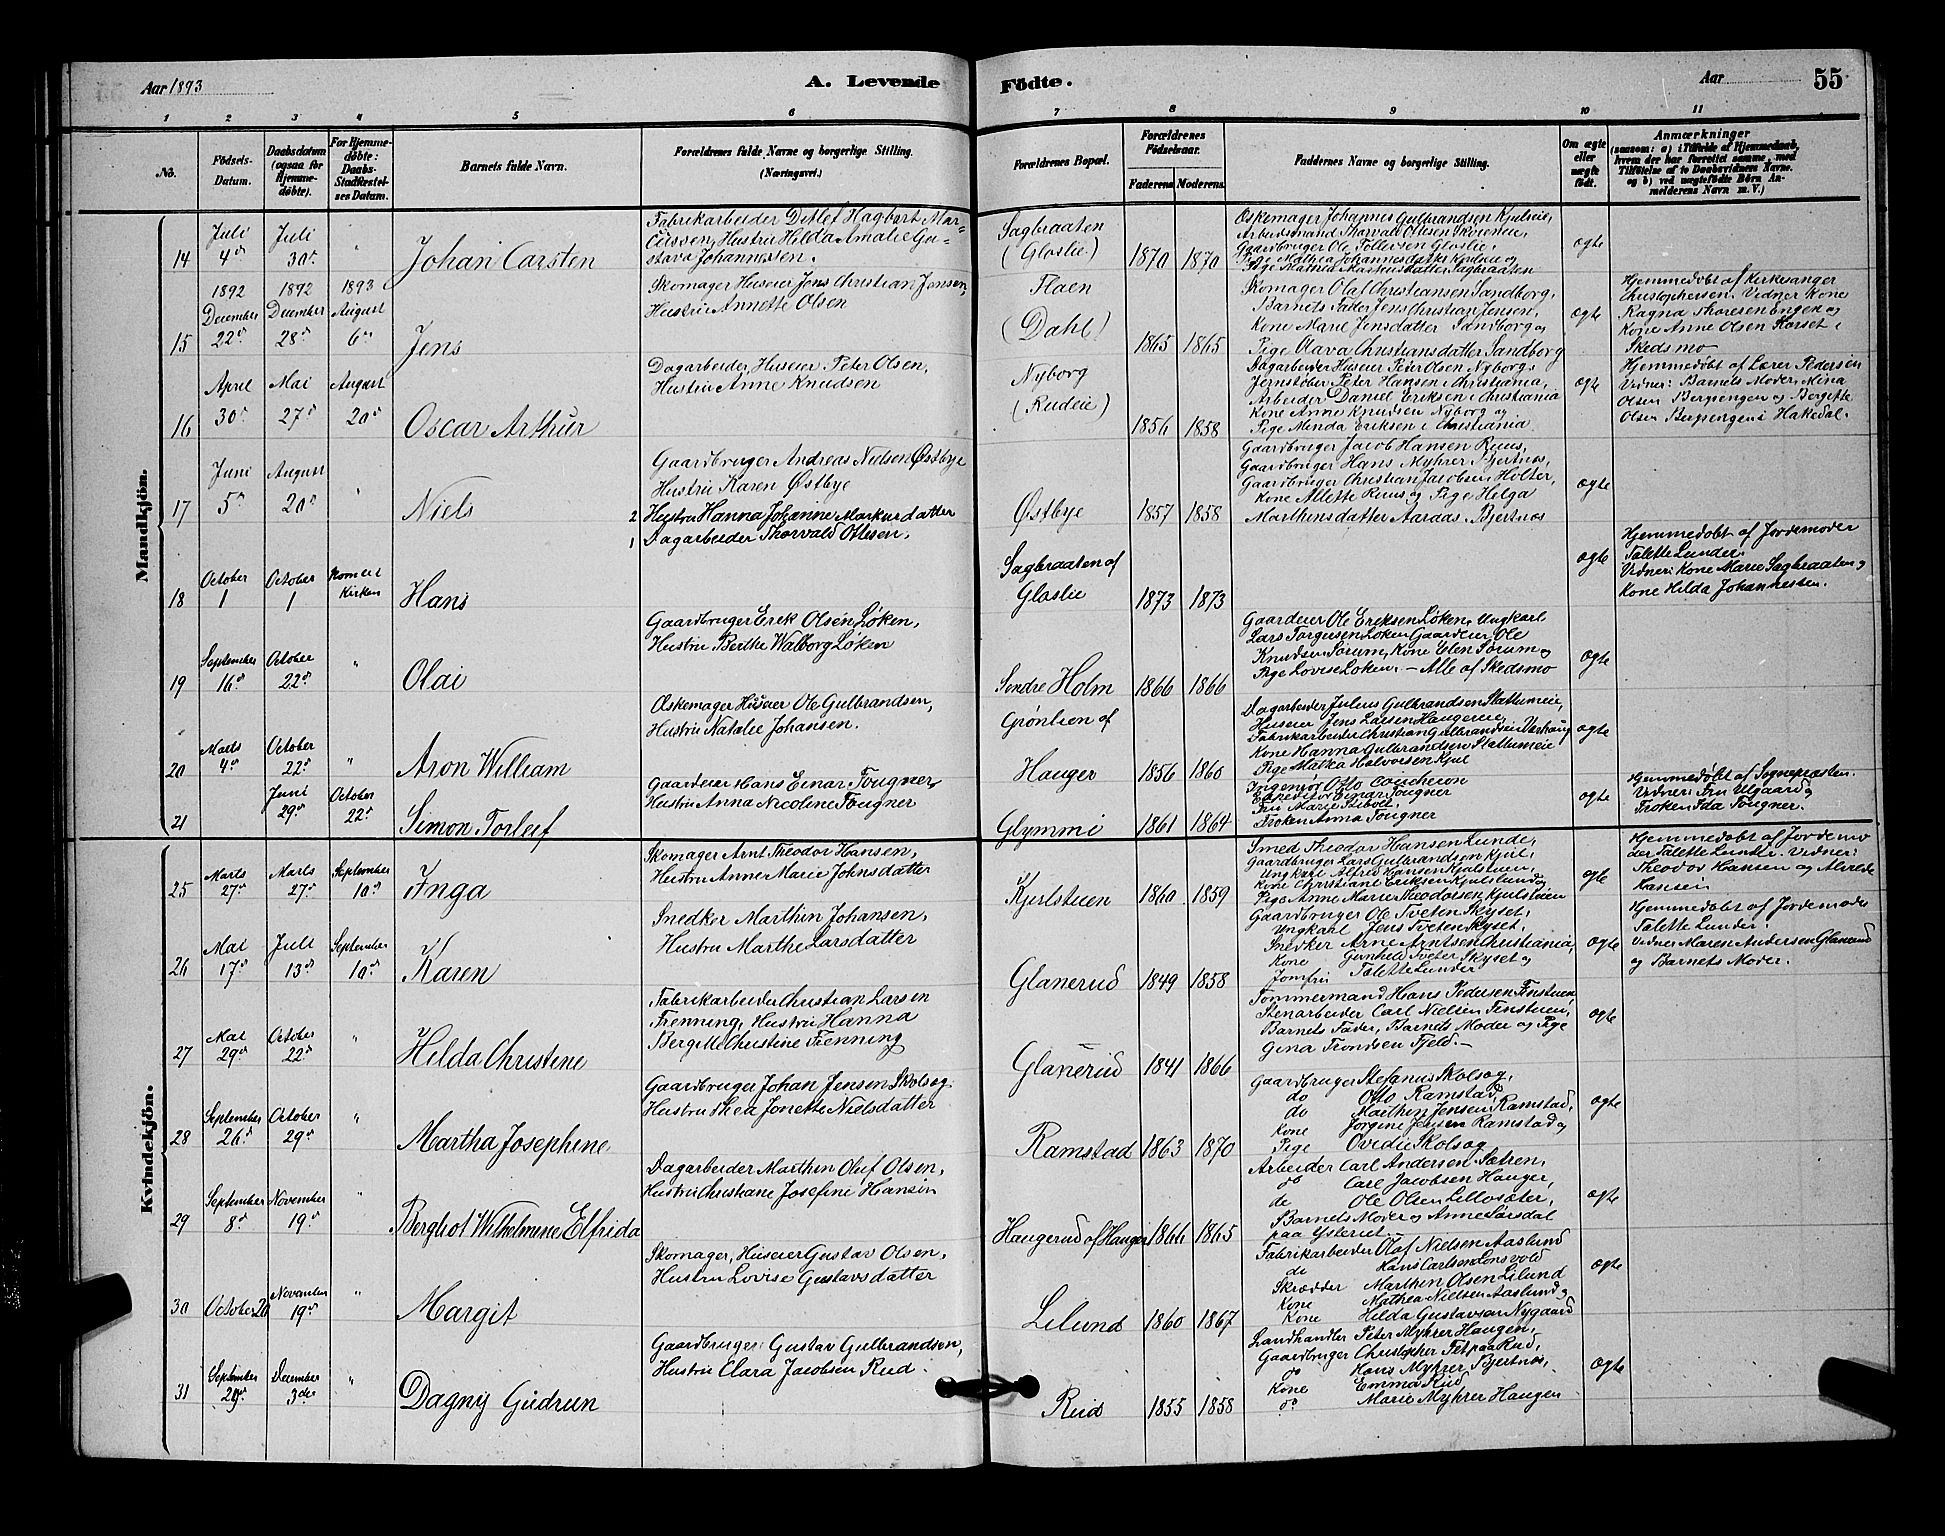 Aar 1893
A. Levende
Födte.
Aar
55
1 2 3 4 5 6 7 8 9 10 11
No.
Födsels-
Datum.
Daabsdatum
(ogsaa for
Hjemme-
döbte).
For Hjemme-
döbte:
Daabs-
Stadfæstel-
ses Datum.
Barnets fulde Navn.
Forældrenes fulde Navne og borgerlige Stilling.
(Næringsvei.)
Forældrenes Bopæl.
Forældrenes
Födselsaar.
Faderens. Moderens.
Faddernes Navne og borgerlige Stilling.
Om ægte
eller
uægte
födt.
Anmærkninger
(saasom: a) i Tilfælde af Hjemmedaab,
hvem der har forrettet samme, med
Tilföielse af to Daabsvidners Navne,
og b) ved uægtefödte Börn An-
melderens Navn m. V.)
Mandkjön.
14
Juli
4de
Juli
30te
"
Johan Carsten
Fabrikarbeider Detlef Hagbart Mar-
cussen, Hustru Hilda Amalie Gu-
stava Johannessen.
Sagbraaten
(Gloslie)
1870 1870
Oskemager Johannes Gulbrandsen Kjulseie,
Arbeidsmand Thorvald Ottesen Skoieneie,
Gaardbruger Ole Tollevsen Gloslie,
Pige Mathea Johannesdatter Kjulseie og
Pige Mathea Markusdatter Sagbraaten
ægte
15
1892
December
22de
1892
December
28de
1893
August
6te
Jens
Skomager Huseier Jens Christian Jensen,
Hustru Annette Olsen
Flaen
(Dahl)
1865 1865
Skomager Olaf Christiansen Sandborg,
Barnets Fader Jens Christian Jensen,
Kone Marie Jensdatter Sandborg og
Pige Olava Christiansdatter Sandborg
ægte
Hjemmedøbt af Kirkesanger
Christophersen. Vidner Kone
Ragna Thoresen Engen og
Kone Anne Olsen Korset i
Skedsmo
16
April
30te
Mai
27de
August
20de
Oscar Arthur
Dagarbeider, Huseier Peter Olsen,
Hustru Anne Knudsen
Nyborg
(Rudeie)
1856 1858
Dagarbeider Huseier Peter Olsen Nyborg,
Jernstøber Peter Hansen i Christiania,
Arbeider Daniel Eriksen i Christiania
Kone Anne Knudsen Nyborg og
Pige Minda Eriksen i Christiania
ægte
Hjemmedøbt af Lærer Pedersen
Vidner: Barnets Moder, Mina
Olsen Berpengen og Bergitte
Olsen Berpengen i Hakedal.
17
Juni
5te
August
20de
"
Niels
Gaardbruger Andreas Nielsen Østbye
Hustru Karen Østbye
Østbye
1857 1858
Gaardbruger Jacob Hansen Ruus,
Gaardbruger Hans Myhrer Bjertnæs,
Gaardbruger Christian Jacobsen Holter,
Kone Allette Ruus og Pige Helga
Marthinsdatter Aardas. Bjertnæs
ægte
18
October
1
October
1
Kom ei i
Kirken
Hans
2 Hustru Hanna Johanne Markusdatter
1 Dagarbeider Thorvald Ottesen.
Sagbraaten af
Gloslie
1873 1873
ægte
Hjemmedøbt af Jordemoder
Talette Lunder.
Vidner: Kone Marie Sagbraaten og
Kone Hilda Johannessen.
19
September
16de
October
22de
"
Olai
Gaardbruger Erik Olsen Løken,
Hustru Berthe Walborg Løken
Søndre Holm
1866 1866
Gaardeier Ole Eriksen Løken, Ungkarl
Lars Torgersen Løken Gaardeier Ole
Knudsen Sørum, Kone Elen Sørum og
Pige Lovise Løken. – Alle af Skedsmo
ægte
20
Marts
4de
October
22de
"
Aron William
Oskemager Huseier Ole Gulbrandsen,
Hustru Natalie Johansen.
Grønlien af
Hauger
1856 1860
Dagarbeider Julius Gulbrandsen Slattumeie,
Huseier Jens Larsen Haugereie,
Fabrikarbeider Christian Gulbrandsen
Kone Hanna Gulbrandsen Slattumeie
Pige Halvorsen Kjul
ægte
21
Juni
29de
October
22de
Simon Torleif
Gaardeier Hans Einar Fougner,
Hustru Anna Nicoline Fougner
Glymmi
1861 1864
Ingeniør Otto
Expeditør Einar Fougner
Fru Marie
Frøken Anna Fougner
ægte
Hjemmedøbt af Sognepræsten.
Vidner: Fru Ulgaard og
Frøken Ida Fougner.
Kvindekjön.
25
Marts
27de
Marts
27de
September
10de
Inga
Skomager Arnt Theodor Hansen,
Hustru Anne Marie Johnsdatter
Kjulstuen
1860 1859
Smed Theodor Hansen Lunde,
Gaardbruger Lars Gulbrandsen Kjul,
Ungkarl Alfred Hansen Kjulstuen,
Kone Christiane Eriksen Kjulslund og
Pige Anne Marie Theodorsen Kjulstuen
ægte
Hjemmedøbt af Jordemo
der Talette Lunder. Vidner:
Theodor Hansen og
Hansen
26
Mai
17de
Juli
13de
September
10de
Karen
Snedker Marthin Johansen,
Hustru Marthe Larsdatter
Glanerud
1849 1858
Gaardbruger Ole Tveten Skyset,
Ungkarl Jens Tveten Skyset,
Snedker Arne Arntsen Christiania,
Kone Gunhild Tveter Skyset og
Jomfru Talette Lunder
ægte
Hjemmedøbt af Jordemoder
Talette Lunder.
Vidner Maren Andersen Glanerud
og Barnets Moder.
27
Mai
29de
October
22de
"
Hilda Christine
Fabrikarbeider Christian Larsen
Frenning, Hustru Hanna
Bergitte Christine Frenning
Glanerud
1841 1866
Tømmermand Hans Pedersen Finstuen,
Stenarbeider Carl Nielsen Finstuen,
Barnets Fader, Barnets Moder og Pige
Gina Trondsen Fjeld. –
ægte
28
September
26de
October
29de
"
Martha Josephine
Gaardbruger Johan Jensen Skolsæg.
Hustru Thea Jonette Nielsdatter
Ramstad
1863 1870
Gaardbruger Stefanus Skolsæg,
do Otto Ramstad,
do Marthin Jensen Ramstad,
Kone Jørgine Jensen Ramstad og
Pige Ovidie Skolsæg
ægte
29
September
8de
November
19de
"
Bergliot Wilhelmine Elfrida
Dagarbeider Marthin Oluf Olsen,
Hustru Christiane Josefine Hansen
Haugerud af Hauger
1866 1865
Arbeider Carl Andersen Sætren,
do Carl Jacobsen Hauger,
do Ole Olsen Lillosæter,
Barnets Moder og Anne Sørsdal
paa Ysleriet.
ægte
30
October 20
November
19de
"
Margit
Skomager, Huseier Gustav Olsen,
Hustru Lovise Gustavsdatter
Lilund
1860 1867
Fabrikarbeider Olaf Nielsen Aaslund
do Hans Carlsen Lonsvold
Skrædder Marthin Olsen Lilund
Kone Mathea Nielsen Aaslund og
Kone Hilda Gustavsen Nygaard
ægte
31
September
29de
December
3die
"
Dagny Gudrun
Gaardbruger Gustav Gulbrandsen,
Hustru Clara Jacobsen Rud.
Rud
1855 1858
Landhandler Peter Myhrer Haugen,
Gaardbruger Christopher Fet paa Rud,
do Hans Myhrer Bjertnæs,
Kone Emma Rud
do Marie Myhrer Haugen
ægte